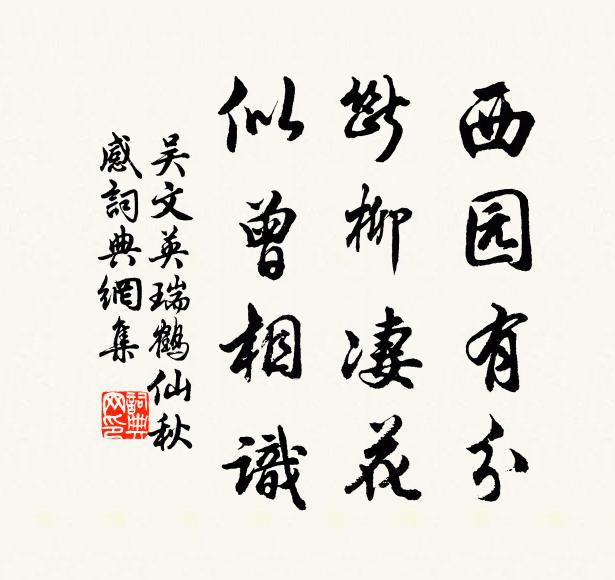 西园有分
斷柳凄花
似曾相識
吴文英瑞鶴仙秋
感詞典網集
詞典
网印